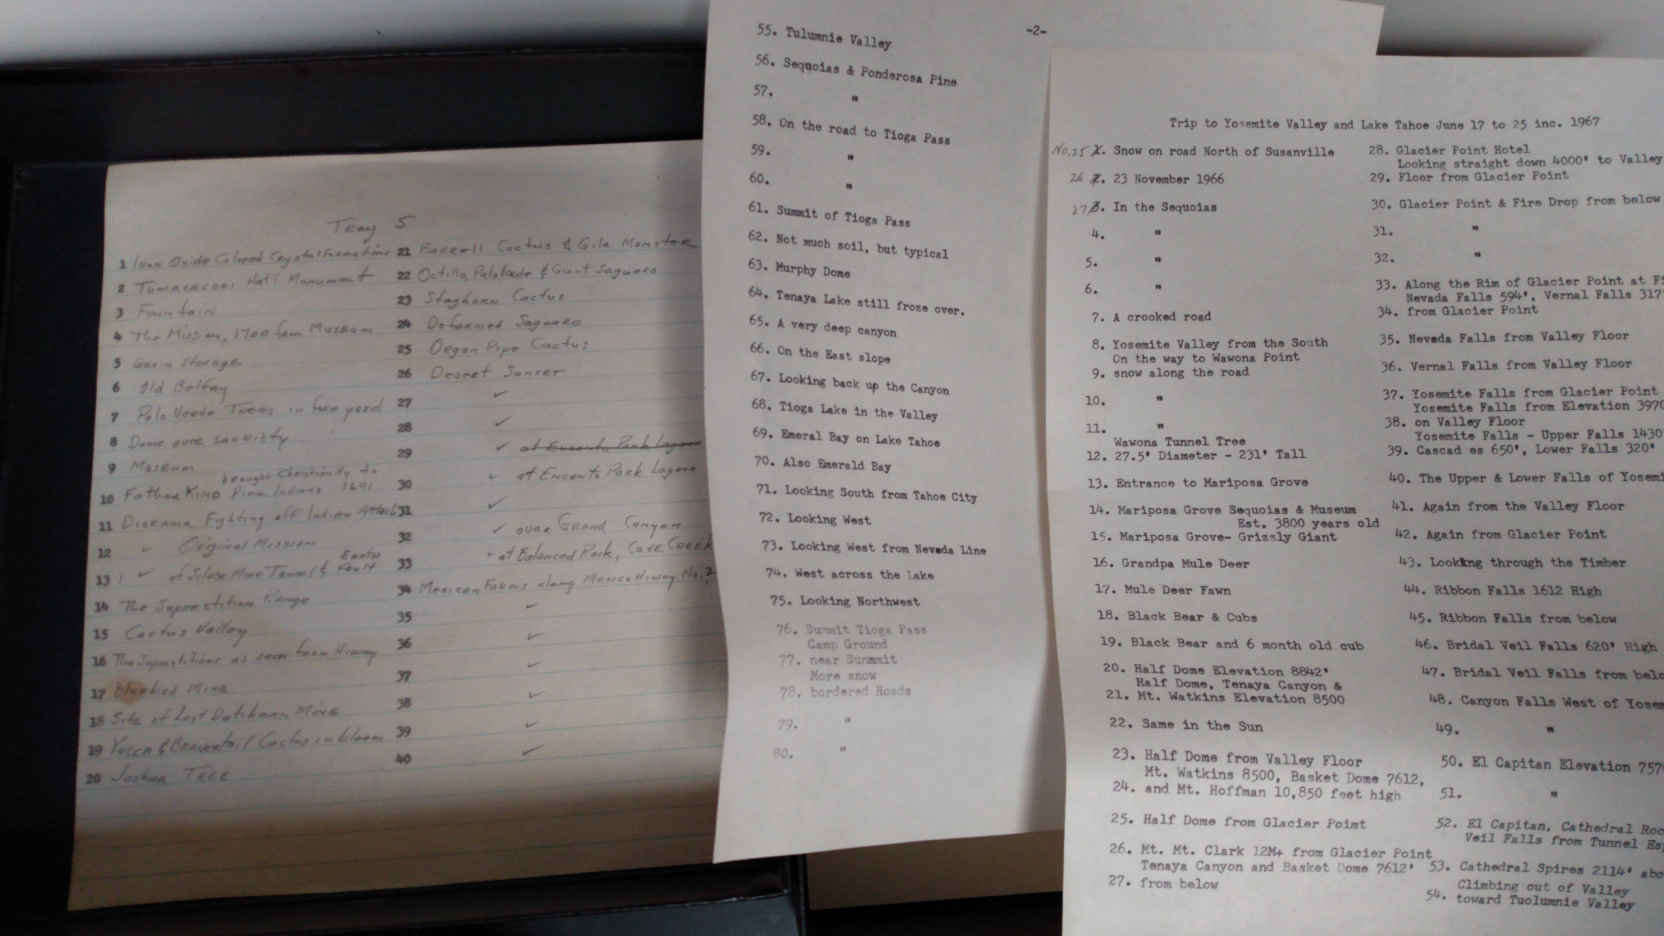 Tray 5
1 Iron Oxide Colored Crystal Formations
2 Tumacacori Nat'l Monument
3 Fountain
4 The Mission, 1700 from Museum
5 Grain Storage
6 Old Belfry
7 Palo Verde Trees in fore yard
8 Dome over sancristy
9 Museum
brought Christianity to
10 Father Kino Pima Indians 1691
11 Diorama Fighting off Indian Attack
12 " Original Mission
13 ✓ at Silver Mine Tunnel &
14 The Superstition Range
15 Cactus Valley
16 The Superstitions as seen from Hiway
17 Bluebird Mine
18 Site of Lost Dutchman Mine
19 Yucca & Beavertail Cactus in bloom
20 Joshua Tree
21 Barrell Cactus & Gila Monster
22 Octillo, Paloverde & Giant Saguaro
23 Staghorn Cactus
24 Deformed Saguaro
25 Organ Pipe Cactus
26 Desret Sunset
27 ✓
28 ✓
29 ✓ at Encanto Park Lagoon
30 ✓ at Encanto Park Lagoon
31 ✓
32 ✓ over Grand Canyon
33 " at Balanced Rock, Cave Creek
34 Mexican Farms along Mexico Hiway No. 2
35 ✓
36 ✓
37 ✓
38 ✓
39 ✓
40 ✓
-2-
55. Tulumnie Valley
56. Sequoias & Ponderosa Pine
57. "
58. On the road to Tioga Pass
59. "
60. "
61. Summit of Tioga Pass
62. Not much soil, but typical
63. Murphy Dome
64. Tenaya Lake still froze over.
65. A very deep canyon
66. On the East slope
67. Looking back up the Canyon
68. Tioga Lake in the Valley
69. Emeral Bay on Lake Tahoe
70. Also Emerald Bay
71. Looking South from Tahoe City
72. Looking West
73. Looking West from Nevada Line
74. West across the Lake
75. Looking Northwest
76. Summit Tioga Pass
Camp Ground
77. near Summit
More snow
78. bordered Roads
79. "
80. "
Trip to Yosemite Valley and Lake Tahoe June 17 to 25 inc. 1967
No. 25 1. Snow on road North of Susanville
26 2. 23 November 1966
27 3. In the Sequoias
4. "
5. "
6. "
7. A crooked road
8. Yosemite Valley from the South
On the way to Wawona Point
9. snow along the road
10. "
11. "
Wawona Tunnel Tree
12. 27.5' Diameter - 231' Tall
13. Entrance to Mariposa Grove
14. Mariposa Grove Sequoias & Museum
Est. 3800 years old
15. Mariposa Grove- Grizzly Giant
16. Grandpa Mule Deer
17. Mule Deer Fawn
18. Black Bear & Cubs
19. Black Bear and 6 month old cub
20. Half Dome Elevation 8842'
Half Dome, Tenaya Canyon &
21. Mt. Watkins Elevation 8500
22. Same in the Sun
23. Half Dome from Valley Floor
Mt. Watkins 8500, Basket Dome 7612,
24. and Mt. Hoffman 10,850 feet high
25. Half Dome from Glacier Point
26. Mt. Mt. Clark 12M+ from Glacier Point
Tenaya Canyon and Basket Dome 7612'
27. from below
28. Glacier Point Hotel
Looking straight down 4000' to Valley
29. Floor from Glacier Point
30. Glacier Point & Fire Drop from below
31. "
32. "
33. Along the Rim of Glacier Point at
Nevada Falls 594', Vernal Falls 317
34. from Glacier Point
35. Nevada Falls from Valley Floor
36. Vernal Falls from Valley Floor
37. Yosemite Falls from Glacier Point
Yosemite Falls from Elevation 3970
38. on Valley Floor
Yosemite Falls - Upper Falls 1430
39. Cascad es 650', Lower Falls 320'
40. The Upper & Lower Falls of Yosemi
41. Again from the Valley Floor
42. Again from Glacier Point
43. Looking through the Timber
44. Ribbon Falls 1612 High
45. Ribbon Falls from below
46. Bridal Veil Falls 620' High
47. Bridal Veil Falls from belo
48. Canyon Falls West of Yosem
49. "
50. El Capitan Elevation 757
51. "
52. El Capitan, Cathedral Roc
Veil Falls from Tunnel Es
53. Cathedral Spires 2114' abo
Climbing out of Valley
54. toward Tuolumnie Valley